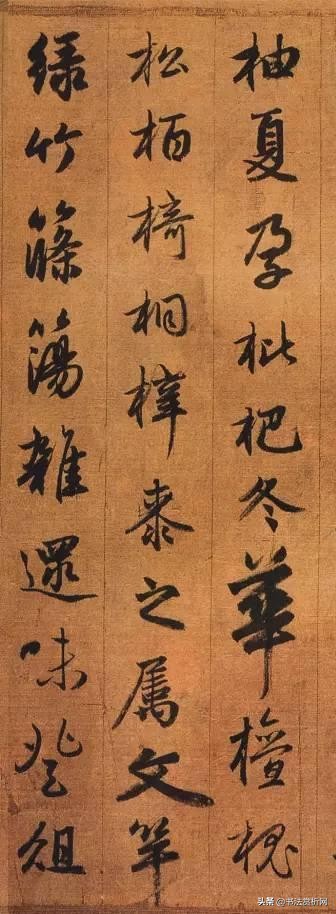 柚夏孕枇杷冬華檀槐
松栢椅桐梓桼之属文竿
緑竹篠簜雜遝味登俎
头条 @书法赏析网